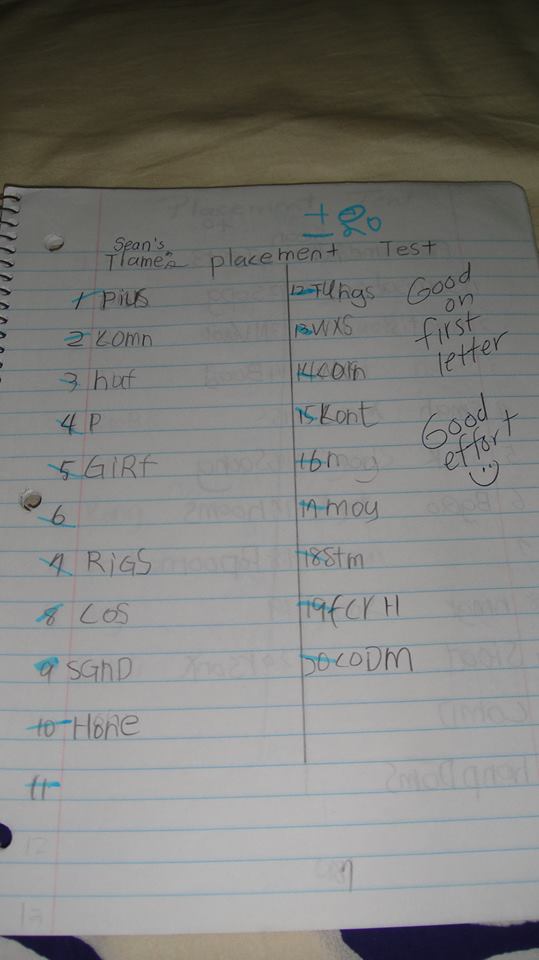 ± 20
Sean's
Tlame's placement Test
1 Pius
2 Komn
3 huf
4 P
5 GiRf
6
7 RiGS
8 COS
9 SGhD
10 Hone
11
12 Tungs
13 WXS
14 Corn
15 Kont
16 my
17 moy
18 Stm
19 fCrH
20 CODM
Good
on
first
letter
Good
effort